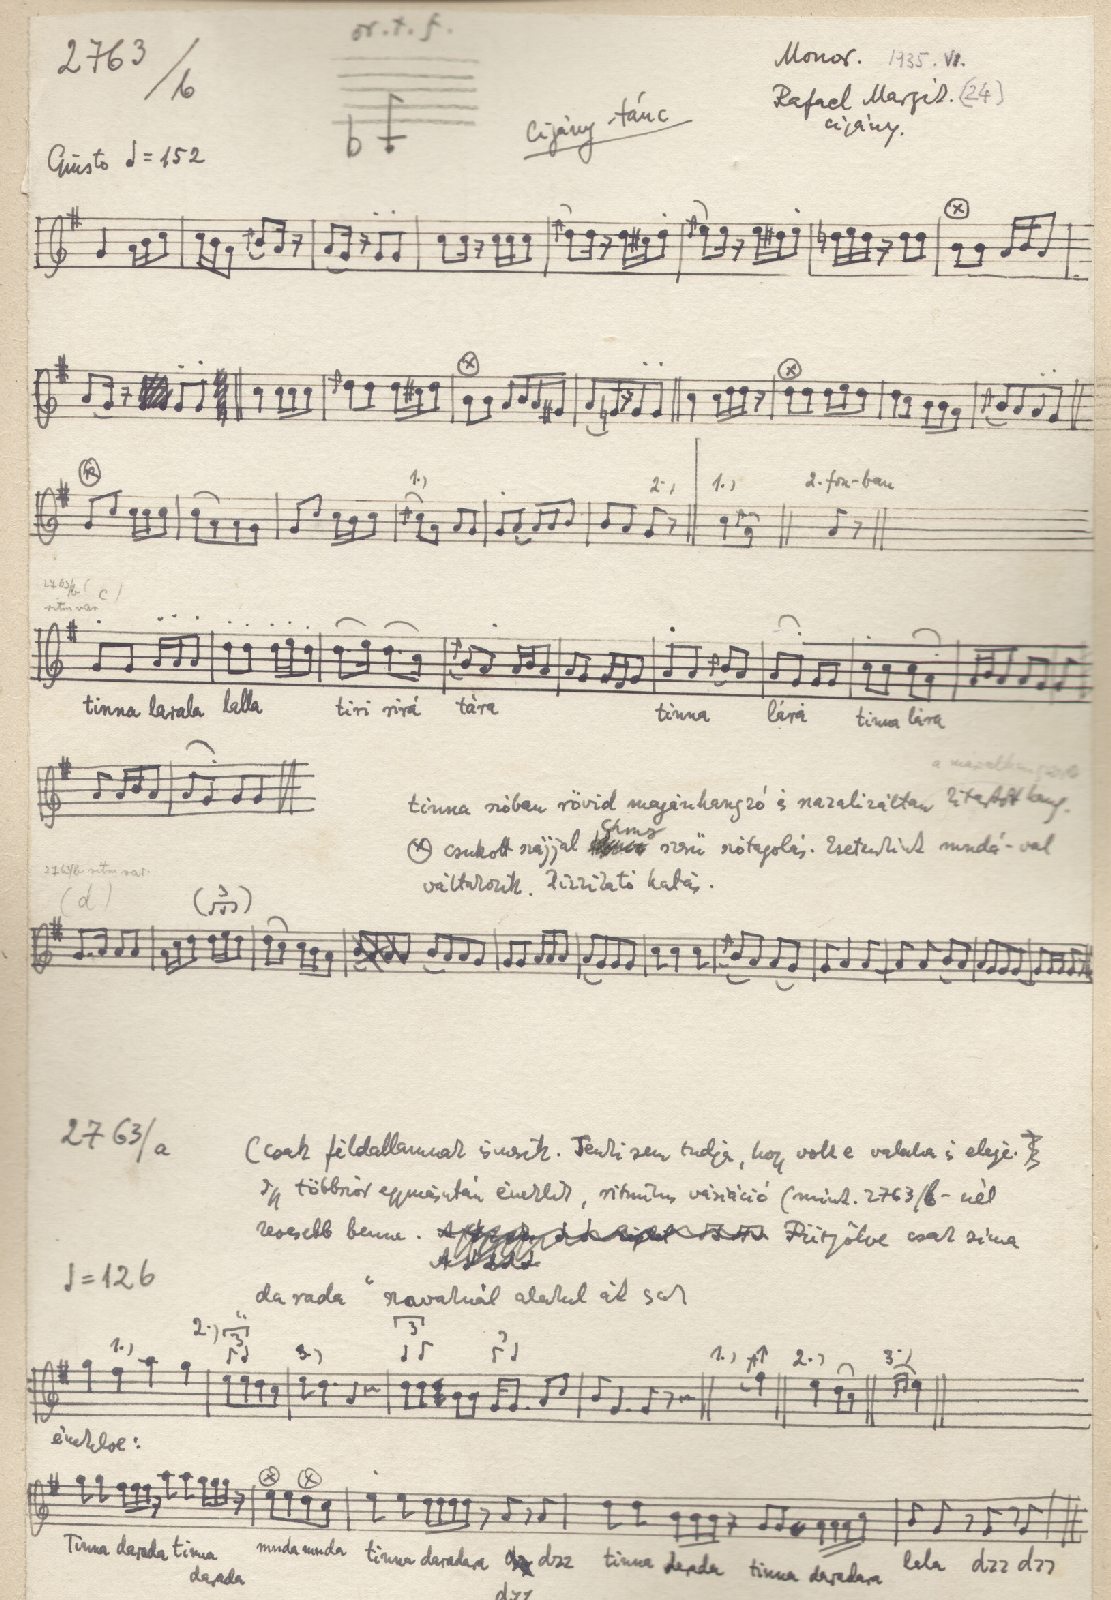 2763/b
or. t. f.
Monor. 1935. VI.
Rafael Margit. (24)
cigány.
Cigány tánc
Giusto ♩=152
1.,
2.,
1.,
2. fon-ban
2763/b (c)
ritm var.
tinna larala lalla tiri rirá tára tinna lárá tinna lára
tinna szóban rövid magánhangzó és nazalizáltan kitartott hang.
ⓧ csukott szájjal szerű szótagolás. Esetenként mundá-val
váltakozik. Pizzikató hatás.
2763/b ritm var.
(d)
(3)
2763/a
(csak féldallamnak ismerik. Senki sem tudja, hogy volt-e valaha is eleje.
Így többször egymásután éneklik, ritmikus variáció (mint. 2763/b-nél
kevesebb benne. Fütyölve csak sima
♩=126
da rada " szavaknál alakul át
1.,
2.,
3
3.,
3
3
1.,
2.,
3.,
énekelve:
Tinna darada tinna
darada
munda munda tinna daradara dzz tinna darada tinna daradara lala dzz dzz
dzz